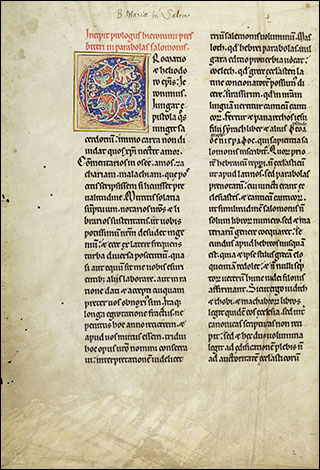 B. Mariae in Salem
Incipit prologus hieronimi pres
biteri in parabolas salomonis.
CRomatio
et heliodo
ro epis: Ie
ronimus.
Iungat e
pistola qs
iungit sa
cerdotium. immo carta non di
uidat quos xpi nectit amor.
Commentarios in osee. amos. za
chariam. malachiam. quos po
scitis scripsissem si licuisset pre
ualitudine. Mittitis solatia
sumptuum. notarios nros & li
brarios sustentatis. ut uobis
potissimum nrm desudet inge
nium. & ecce ex latere frequens
turba diuersa poscentium. qua
si aut equum sit me uobis esuri
entib; aliis laborare. aut in ra
tione dati & accepti cuiquam
preter uos obnoxius sim. Itaq;
longa egrotatione fractus. ne
penitus hoc anno reticerem. &
apud uos mutus essem. tridui
hoc opus uro nomini consecra
ui. interpretationem uidelicet
trium salomonis uoluminum. Mas
loth. qd hebrei parabolas. uul
gata editio prouerbia uocat.
coeleth. qd grece ecclesiasten. la
tine concionatorem possumus di
cere. sirassirim. qd in nram
linguam uertitur canticum canti
corum. Fertur & panaretos iesu
filii syrach liber. & alius
qui sapientia sa
lomonis inscribitur. Quorum pri
orem hebraicum repperi. non ecclesiasti
cum ut apud latinos. sed parabolas
prenotatum. cui iuncti erant ec
clesiastes. & canticum canticorum.
ut similitudinem salomonis non
solum librorum numero. sed & ma
teriarum genere coequaret. Se
cundus apud hebreos nusquam
est. quia & ipse stilus grecam elo
quentiam redolet. & nonnulli scrip
torum ueterum hunc iudei filonis
affirmant. Sicut ergo iudith
& thobi. & machabeorum libros
legit quidem eos ecclesia. sed int
canonicas scripturas non reci
pit. sic & hec duo uolumina
legat ad edificationem plebis. non
ad auctoritatem ecclesiasticorum